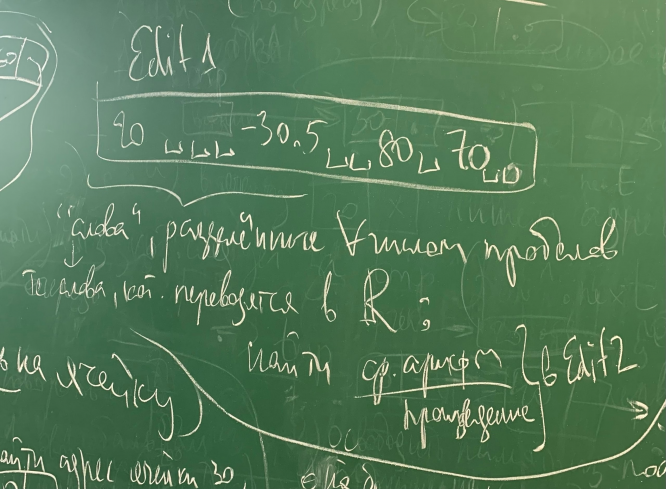 Edit 1
20 ␣␣␣ -30.5 ␣␣ 80 ␣ 70 ␣␣
"слова", разделённые ∀ числом пробелов
Те слова, кот. переводятся в ℝ :
найти ср. арифм } в Edit 2
произведение
на ячейку
найти адрес ячейки 30,